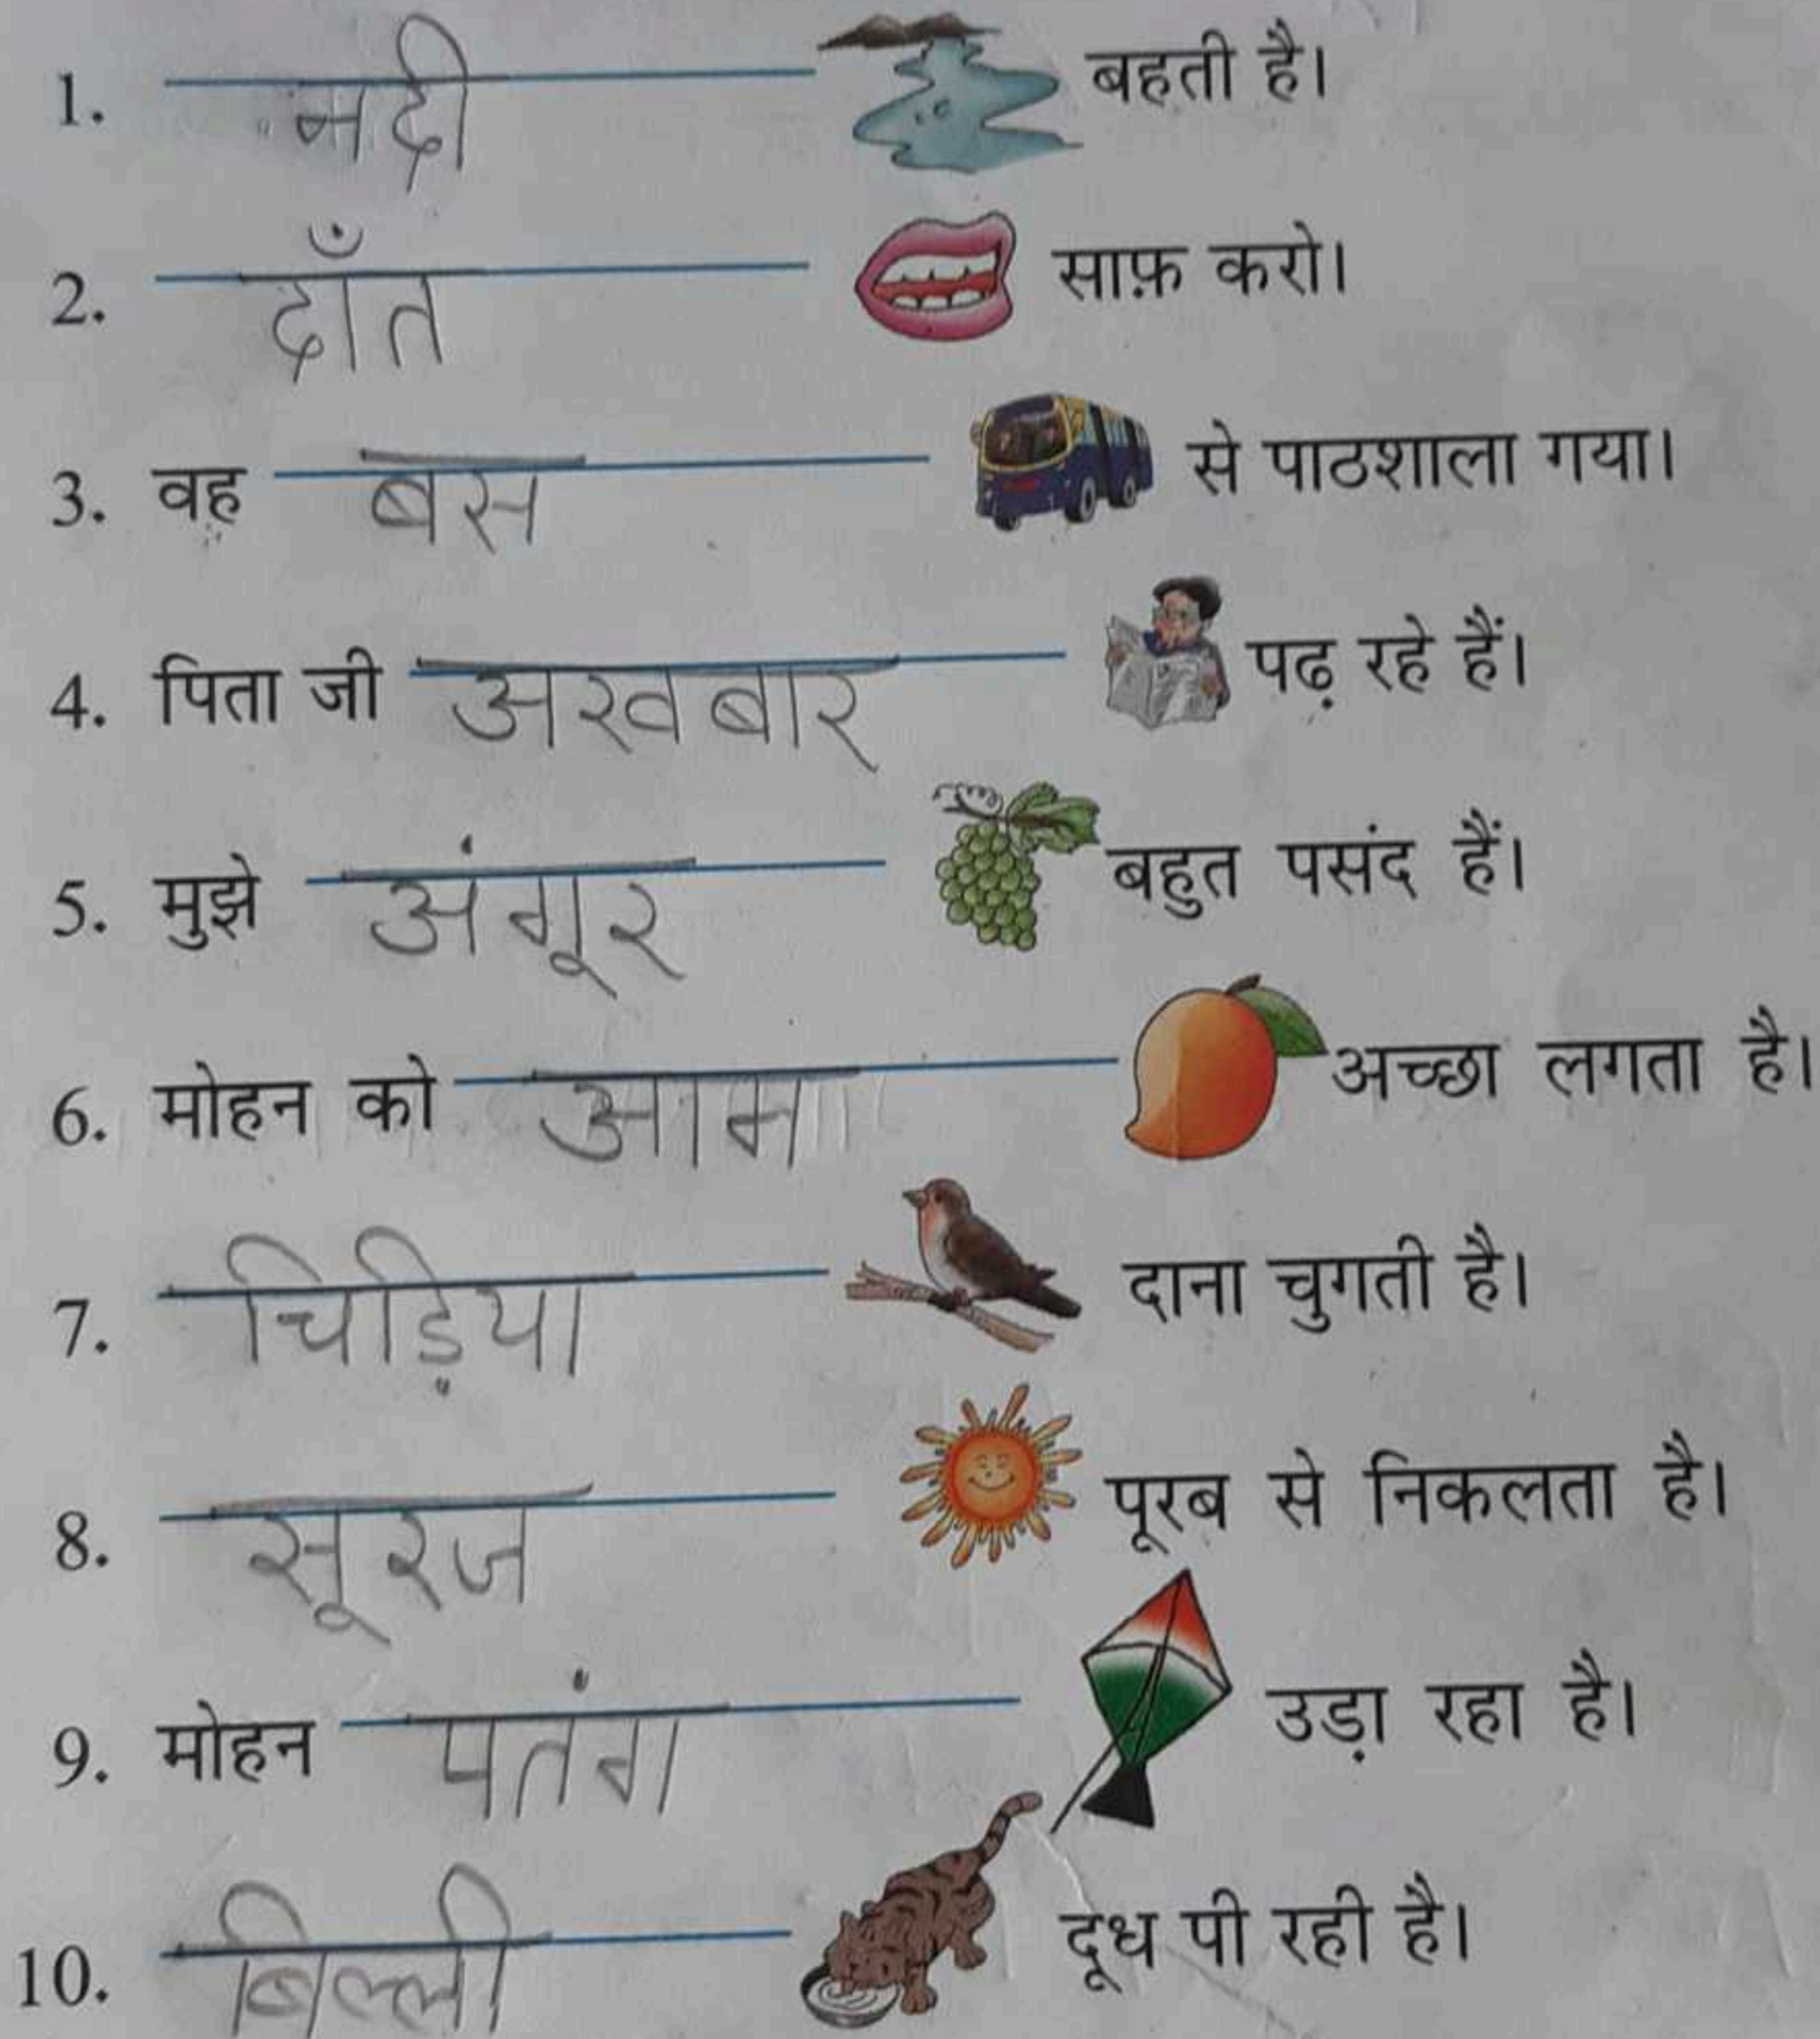 1. नदी बहती है।
2. दाँत साफ़ करो।
3. वह बस से पाठशाला गया।
4. पिता जी अखबार पढ़ रहे हैं।
5. मुझे अंगूर बहुत पसंद हैं।
6. मोहन को आम अच्छा लगता है।
7. चिड़िया दाना चुगती है।
8. सूरज पूरब से निकलता है।
9. मोहन पतंग उड़ा रहा है।
10. बिल्ली दूध पी रही है।